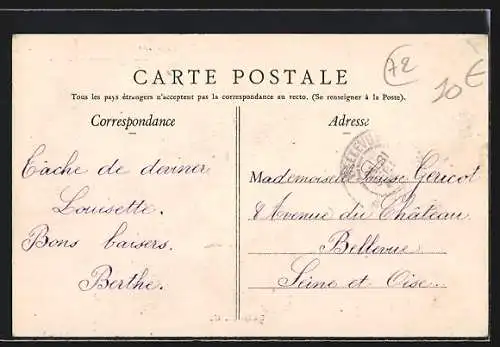 72
10€
CARTE POSTALE
Tous les pays étrangers n'acceptent pas la correspondance au recto. (Se renseigner à la Poste).
Correspondance
Adresse
Tâche de deviner
Louisette.
Bons baisers.
Berthe.
BELLEVUE
Mademoiselle Louise Géricot
8 Avenue du Château
Bellevue
Seine et Oise